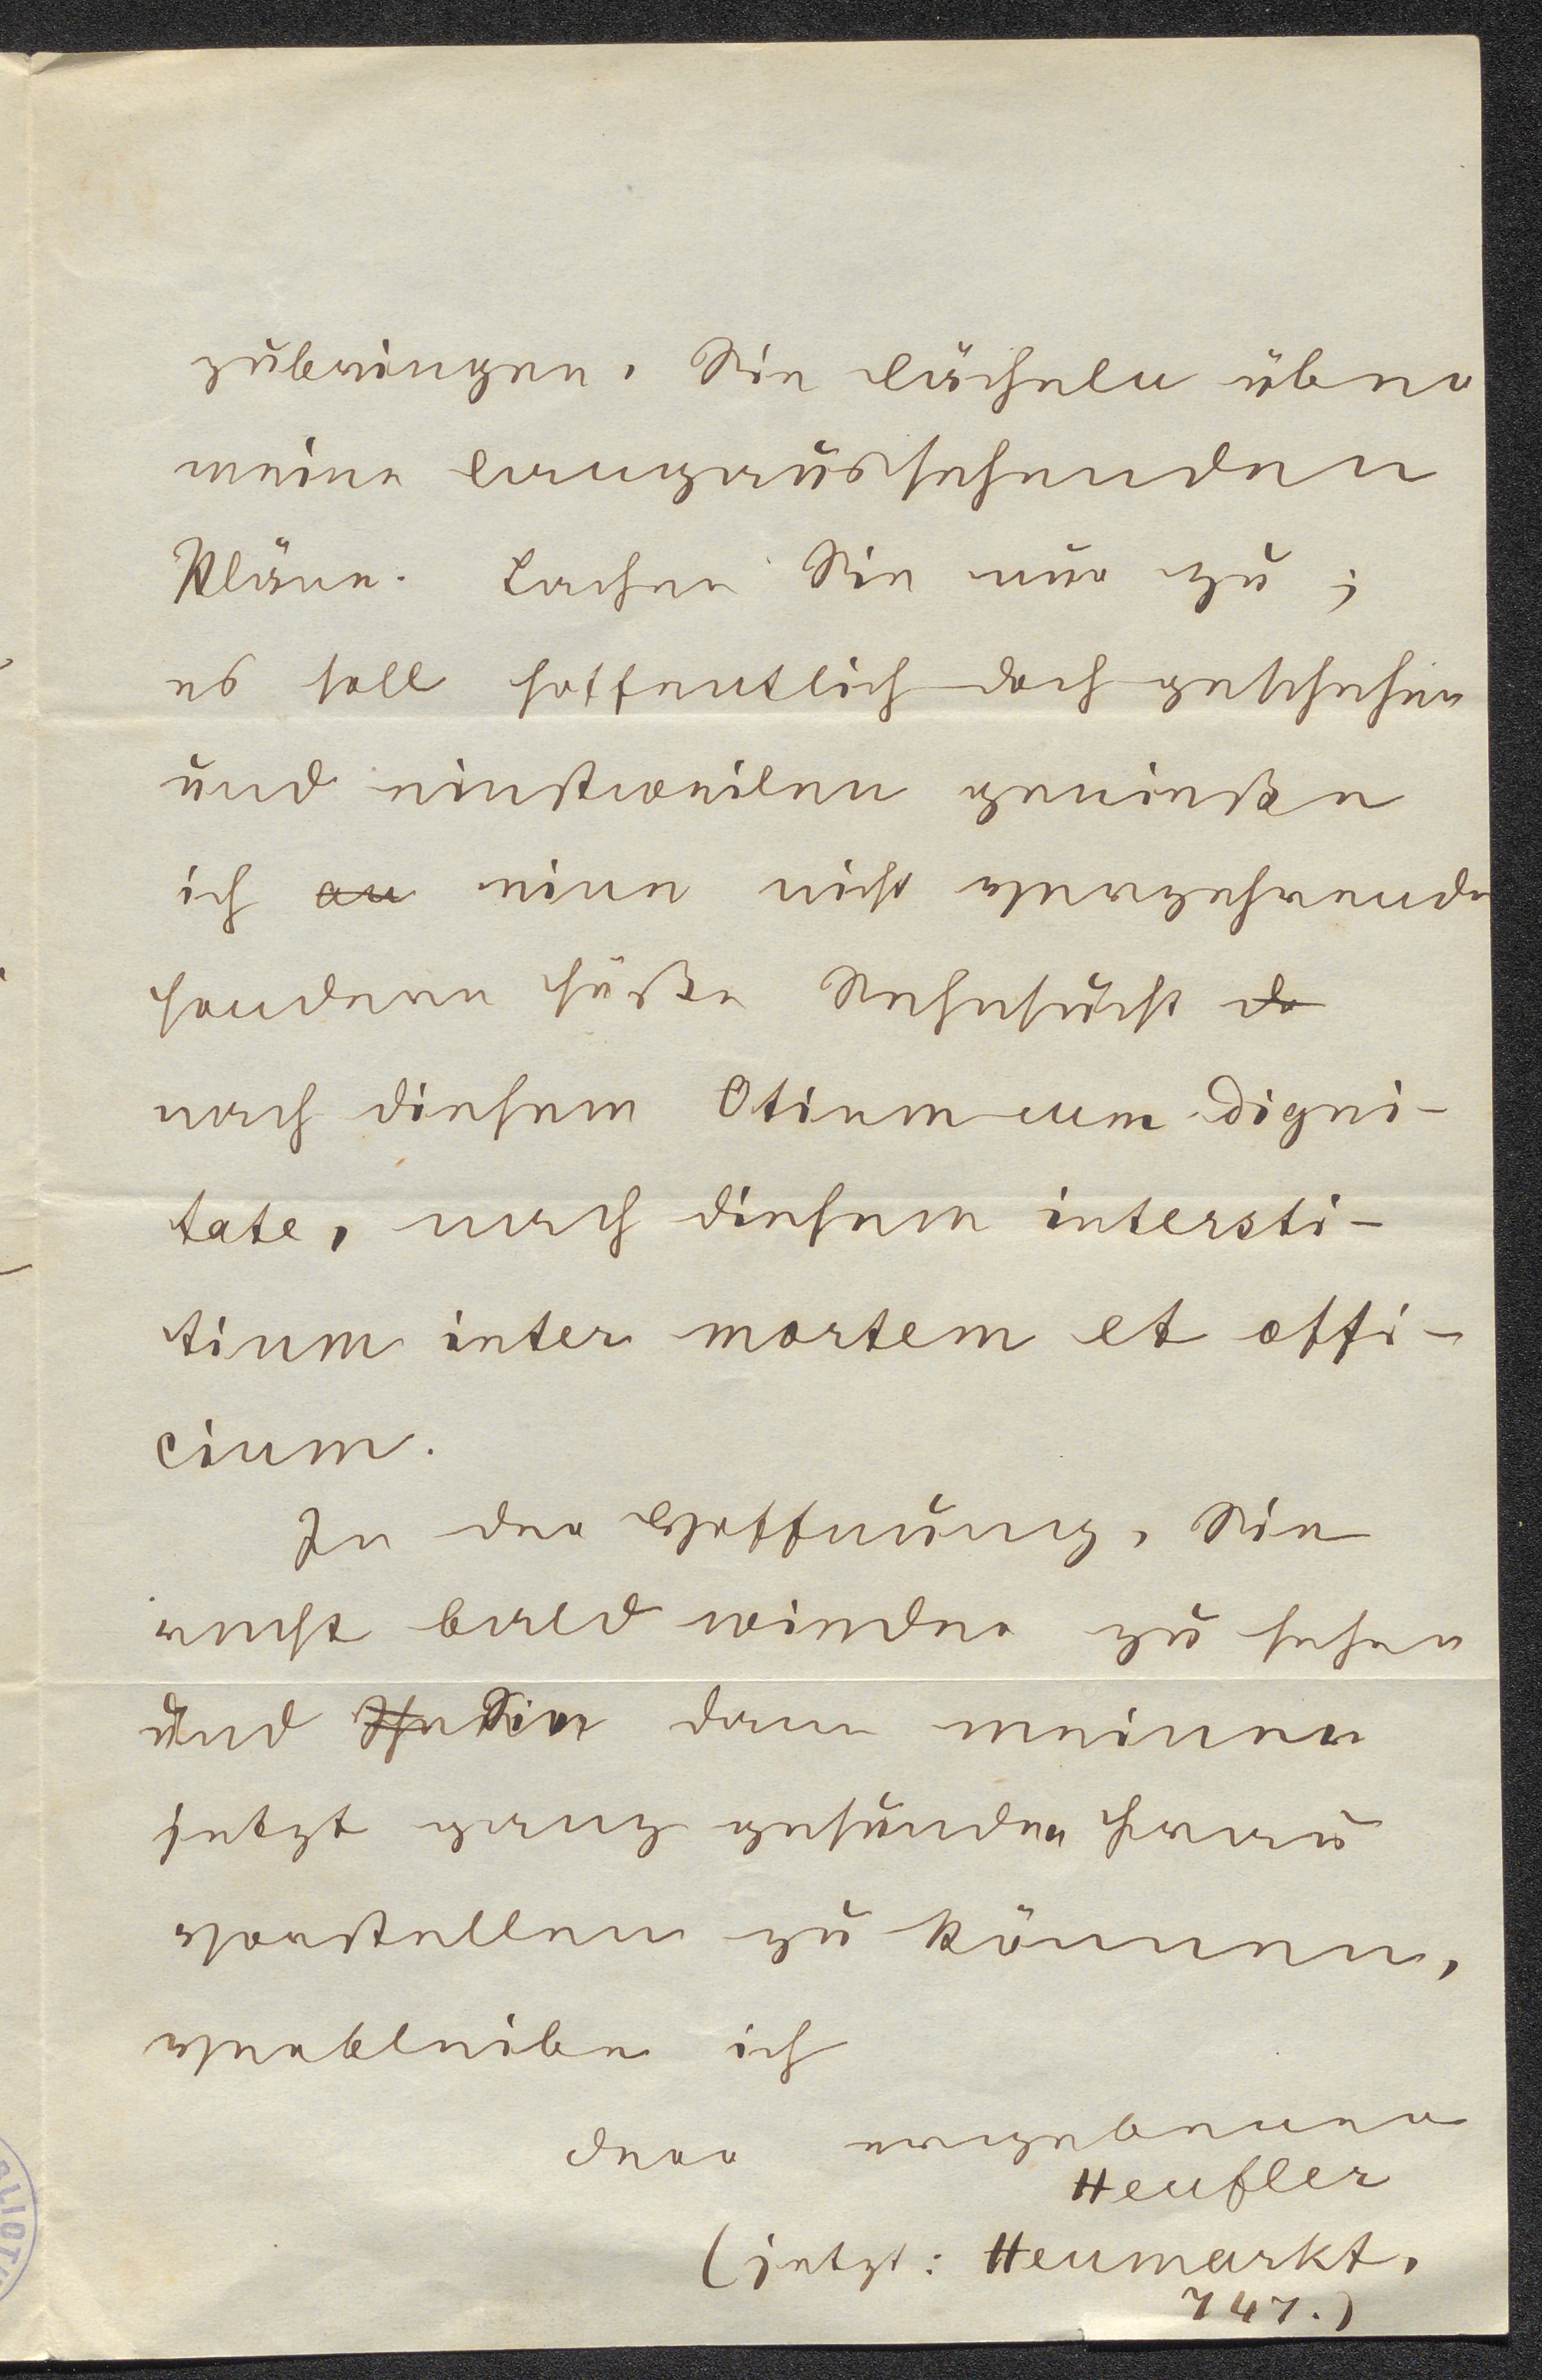 zubringen. Sie lächeln über
meine langaussehenden
Pläne. Lachen Sie nur zu;
es soll hoffentlich doch geschehen
und einstweilen genieße
ich an eine nicht verzehrende
sondern süße Sehnsucht de
nach diesem Otium cum Digni-
tate, nach diesem intersti-
tium inter mortem et offi-
cium.
In der Hoffnung, Sie
recht bald wieder zu sehen
und Ihn Sie dann meiner
jetzt ganz gesunden Frau
vorstellen zu können,
verbleibe ich
der ergebener
Heufler
(jetzt: Heumarkt,
747.)